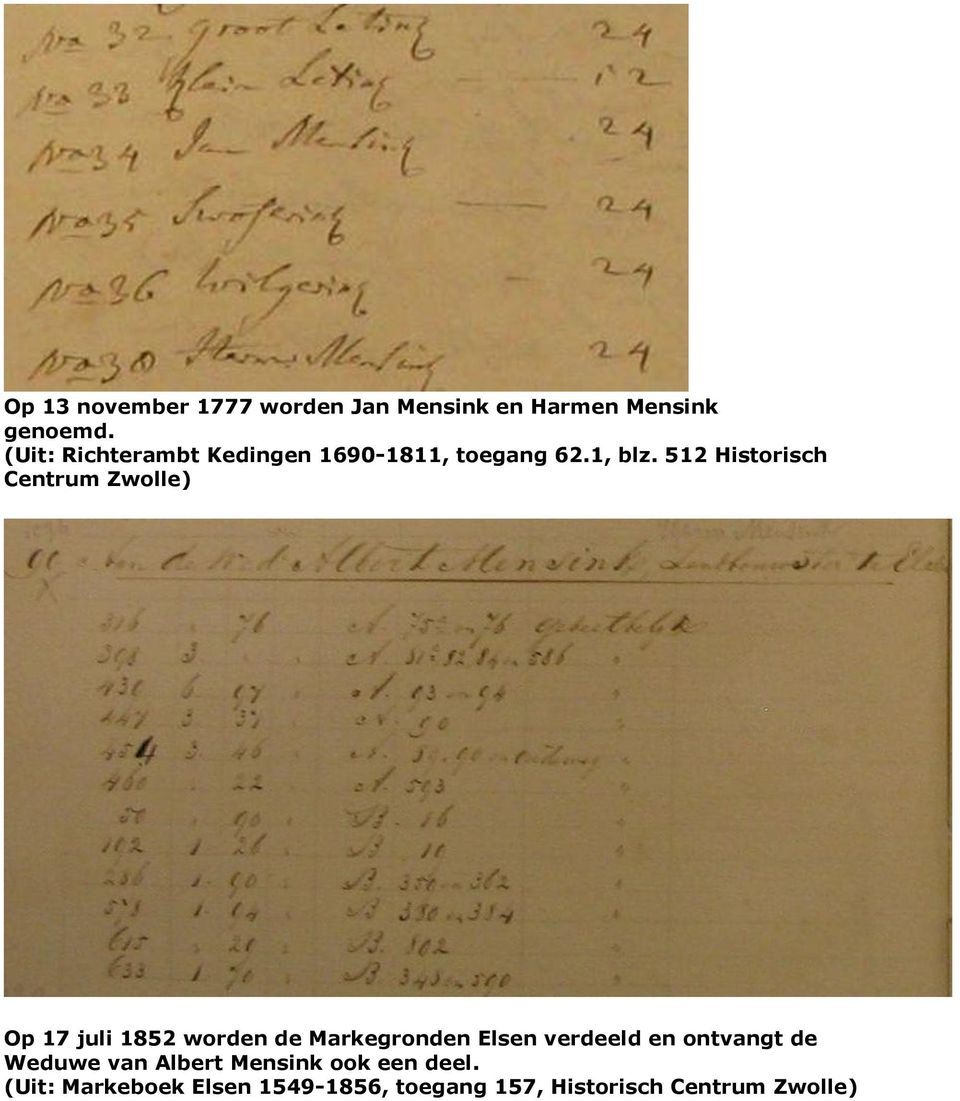 No 32 groot Leting 24
No 33 klein Leting — — 12
No 34 Jan Mensing 24
No 35 — 24
No 36 - 24
No 38 Harm Mensing 24
Op 13 november 1777 worden Jan Mensink en Harmen Mensink
genoemd.
(Uit: Richterambt Kedingen 1690-1811, toegang 62.1, blz. 512 Historisch
Centrum Zwolle)
Harm Mensink
Aan de Wed Albert Mensink, Landbouwster te Elsen
316 " 76 A. 75 en 76 Gedeeltelijk
398 3 A. 82 84 en 586 "
430 6 97 A. 93 en 94 "
447 3 37 A. 90 "
454 3 46 A. 89. 90 en "
460 22 A. 593 "
50 90 B. 16 "
192 1 26 B. 10 "
256 1. 90 B. 350 en 362 "
578 1. 04 B 380 en 384 "
615 20 B. 802 "
633 1. 70 B 348 en 590 "
Op 17 juli 1852 worden de Markegronden Elsen verdeeld en ontvangt de
Weduwe van Albert Mensink ook een deel.
(Uit: Markeboek Elsen 1549-1856, toegang 157, Historisch Centrum Zwolle)